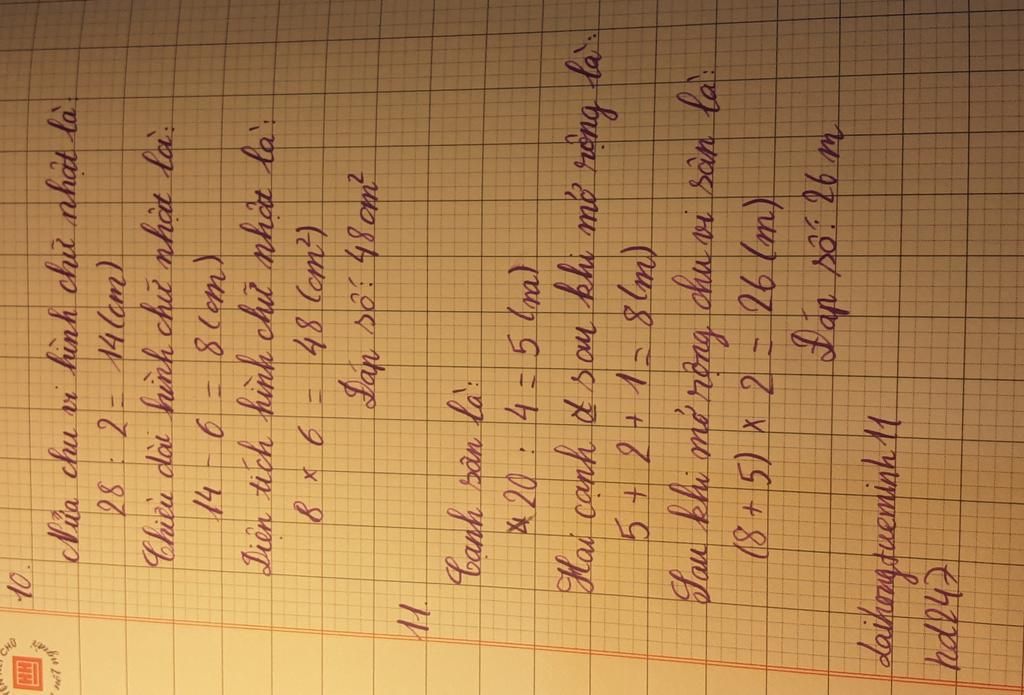 10.
Nửa chu vi hình chữ nhật là:
28 : 2 = 14 (cm)
Chiều dài hình chữ nhật là:
14 - 6 = 8 (cm)
Diện tích hình chữ nhật là:
8 × 6 = 48 (cm²)
Đáp số: 48 cm²
11.
Cạnh sân là:
20 : 4 = 5 (m)
Hai cạnh sau khi mở rộng là:
5 + 2 + 1 = 8 (m)
Sau khi mở rộng chu vi sân là:
(8 + 5) × 2 = 26 (m)
Đáp số: 26 m
daihongtueminh11
hd247